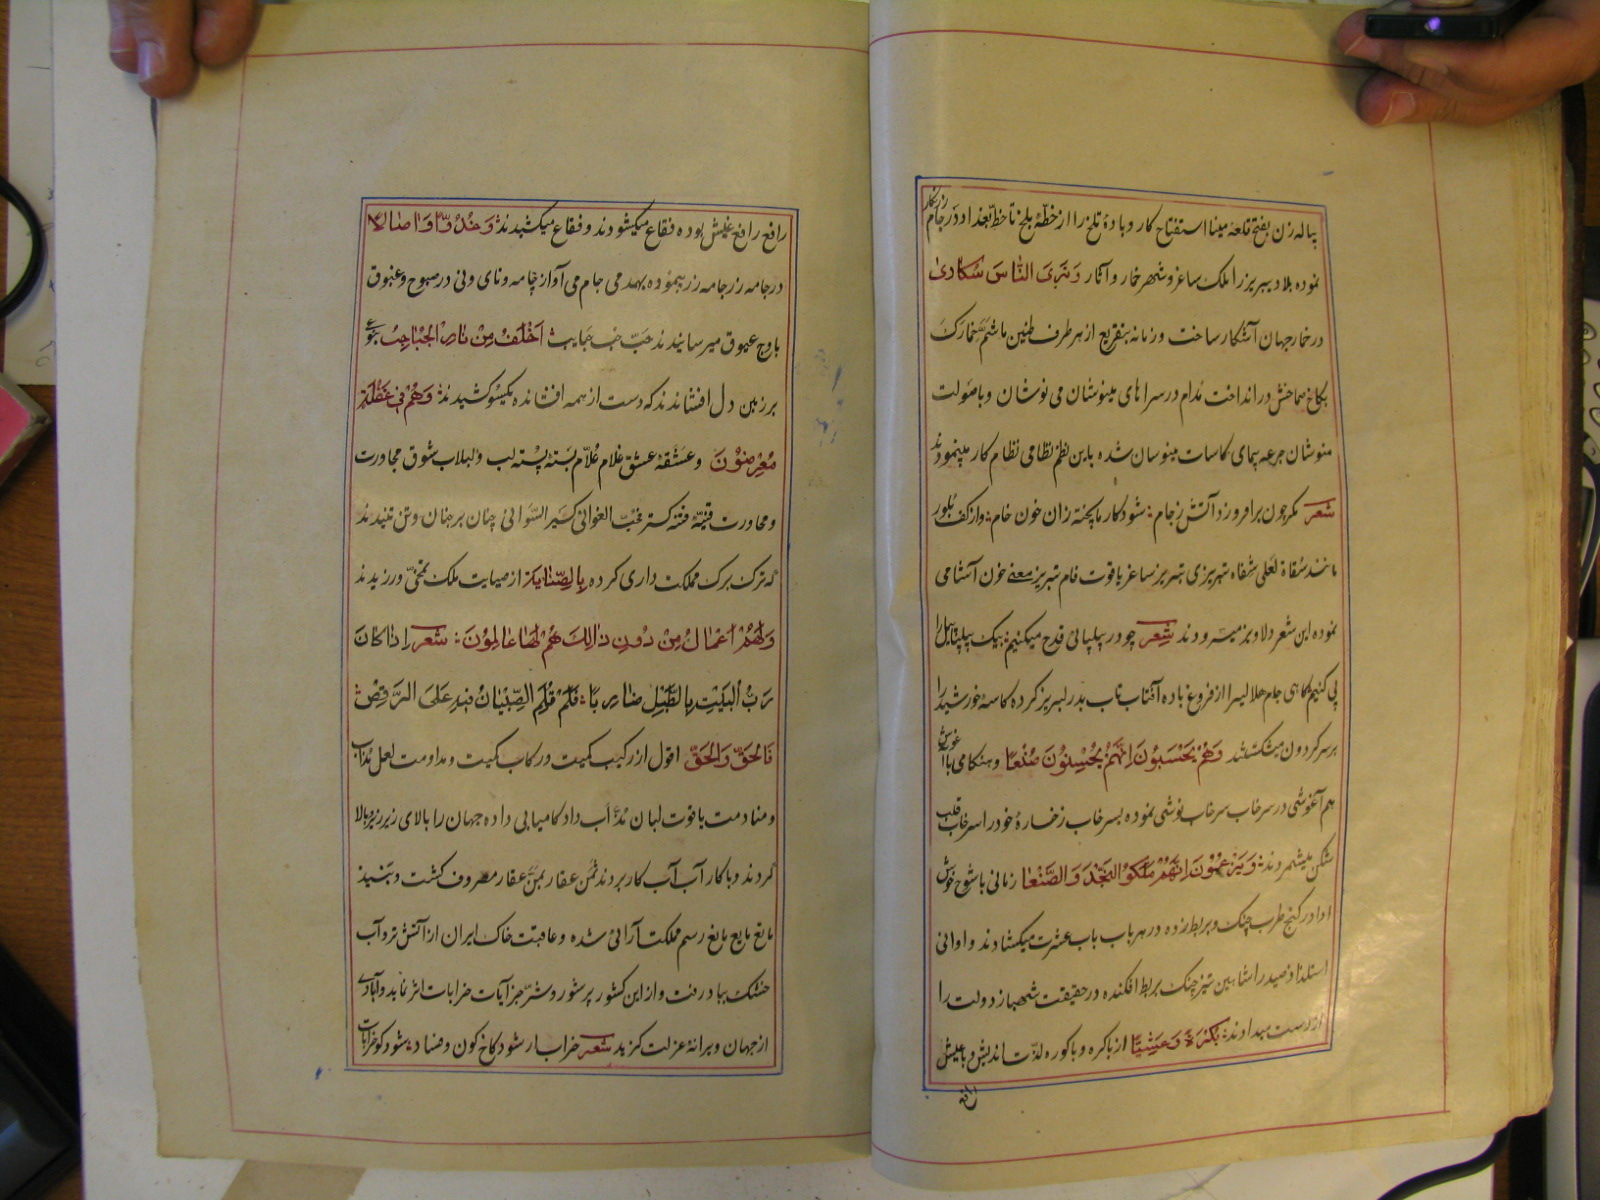 پیاله زن بفتح قلعهٔ مینا استفتاح کار و بادهٔ تلخ را از خطهٔ بلخ تا خط بغداد در جام زرنگار
نموده بلاد ببر بر را ملک ساغر و شهر خمار و آثار وَتَرَی النّاسَ سُکاریٰ
در خمار جهان آشکار ساخت و زمانه بتقریع از هر طرف طنین ما شَمَّ خمارک
بکاخ صماخش در انداخت مُدام در سراهای مینوشان می نوشان و با صولت
منوشان جرعه پیمای کاسات مینوسان شده باین نظم نظامی نظام کار میپیمودند
شعر مگر چون برافروزد آتش ز جام شود کار ما پخته زان خون خام و از کف بلور
مانند سقاة لعلی شفاه تبریزی تبریز ساغر یاقوت فام تبریز معنی خون آشامی
نموده این شعر دلاویز میسرودند شعر چو در پیلپائی قدح میکنیم بیک پیلپا پیل را
پی کنیم گاهی جام هلالی را از فروغ باده آفتاب تاب بدر لبریز کرده کاسهٔ خورشید را
بر سر گردون میشکستند وَهُمْ یَحْسَبُونَ اَنَّهُمْ یُحْسِنُونَ صُنْعًا و هنگامی با آغوش
هم آغوشی در سرخاب سرخاب نوشی نموده بسرخاب رخسارهٔ خود را سرخاب قلب
شکن میشمردند وَیَزْعُمُونَ اَنَّهُمْ مَلَکُوا النَّجْدَ وَالصَّنْعا زمانی با شوخ خوش
ادا در کنج طرب چنک و بربط زده در هر باب باب عشرت میکشادند و اوانی
استلذاذ صید را شاهین تیز چنک بربط افکنده در حقیقت شهباز دولت را
از دست میدادند بُکْرَةً وَعَشِیًّا از باکره و باکوره لذّت اندیش و با عیش
رافع
رافع رافع عیش بوده فقاع میکشودند و فقاع میکشیدند وَ غُدُوًّا وَ اٰصالًا
در جامه زر جامه زر پیموده بهدمی جام می آواز چامه و نای و نی در صبوح و غبوق
باوج عیوق میرسانیدند حَبّ جَبایت اَخْلَفُ مِنْ نارِ الْحُباحِبِ
بر زمین دل افشاندند که دست از همه افشانده یکسو کشیدند وَهُمْ فی غَفْلَةٍ
مُعْرِضُونَ و عشقهٔ عشق غلام عُلّام بَستهٔ پسته لب و لبلاب شوق مجاورت
و محاورت قَینهٔ فتنه گستر مُحِبّ الغوانی کَسَیْر السَّوانی چنان بر جنان و تن تنیدند
که ترک برک مملکت داری کرده بِالصِّنایَة از صیایت ملک تمحّی ورزیدند
وَلَهُمْ اَعْمالٌ مِنْ دُونِ ذٰلِکَ هُمْ لَها عامِلُونَ شعر اِذا کانَ
رَبُّ الْبَیْتِ بِالطَّبْلِ ضارِبًا فَلَمْ تَلُمِ الصِّبْیانَ فیهِ عَلَی الرَّقْصِ
فَالْحَقَّ وَالْحَقَّ اقول از رکیب کمیت در رکاب کمیت و مداومت لعل مُذاب
و منادمت یاقوت لبان تُنْدَ آب داد کامیابی داده جهان را بالای زیر زیر و بالا
کردند و با کار آب آب کار بردند ثمن عقار بثمن عُقار مصروف کشت و بنبیذ
مایغ مایع بایغ رسم مملکت آرائی شده و عاقبت خاک ایران از آتش تر و آب
خشک بباد رفت و از این کشور پر شور و شر جز آیات خرابات اثر نماند و آبادی
از جهان ویرانه عزلت گزید شعر خراب ار شود کاخ کون و فساد شود کو خرابات